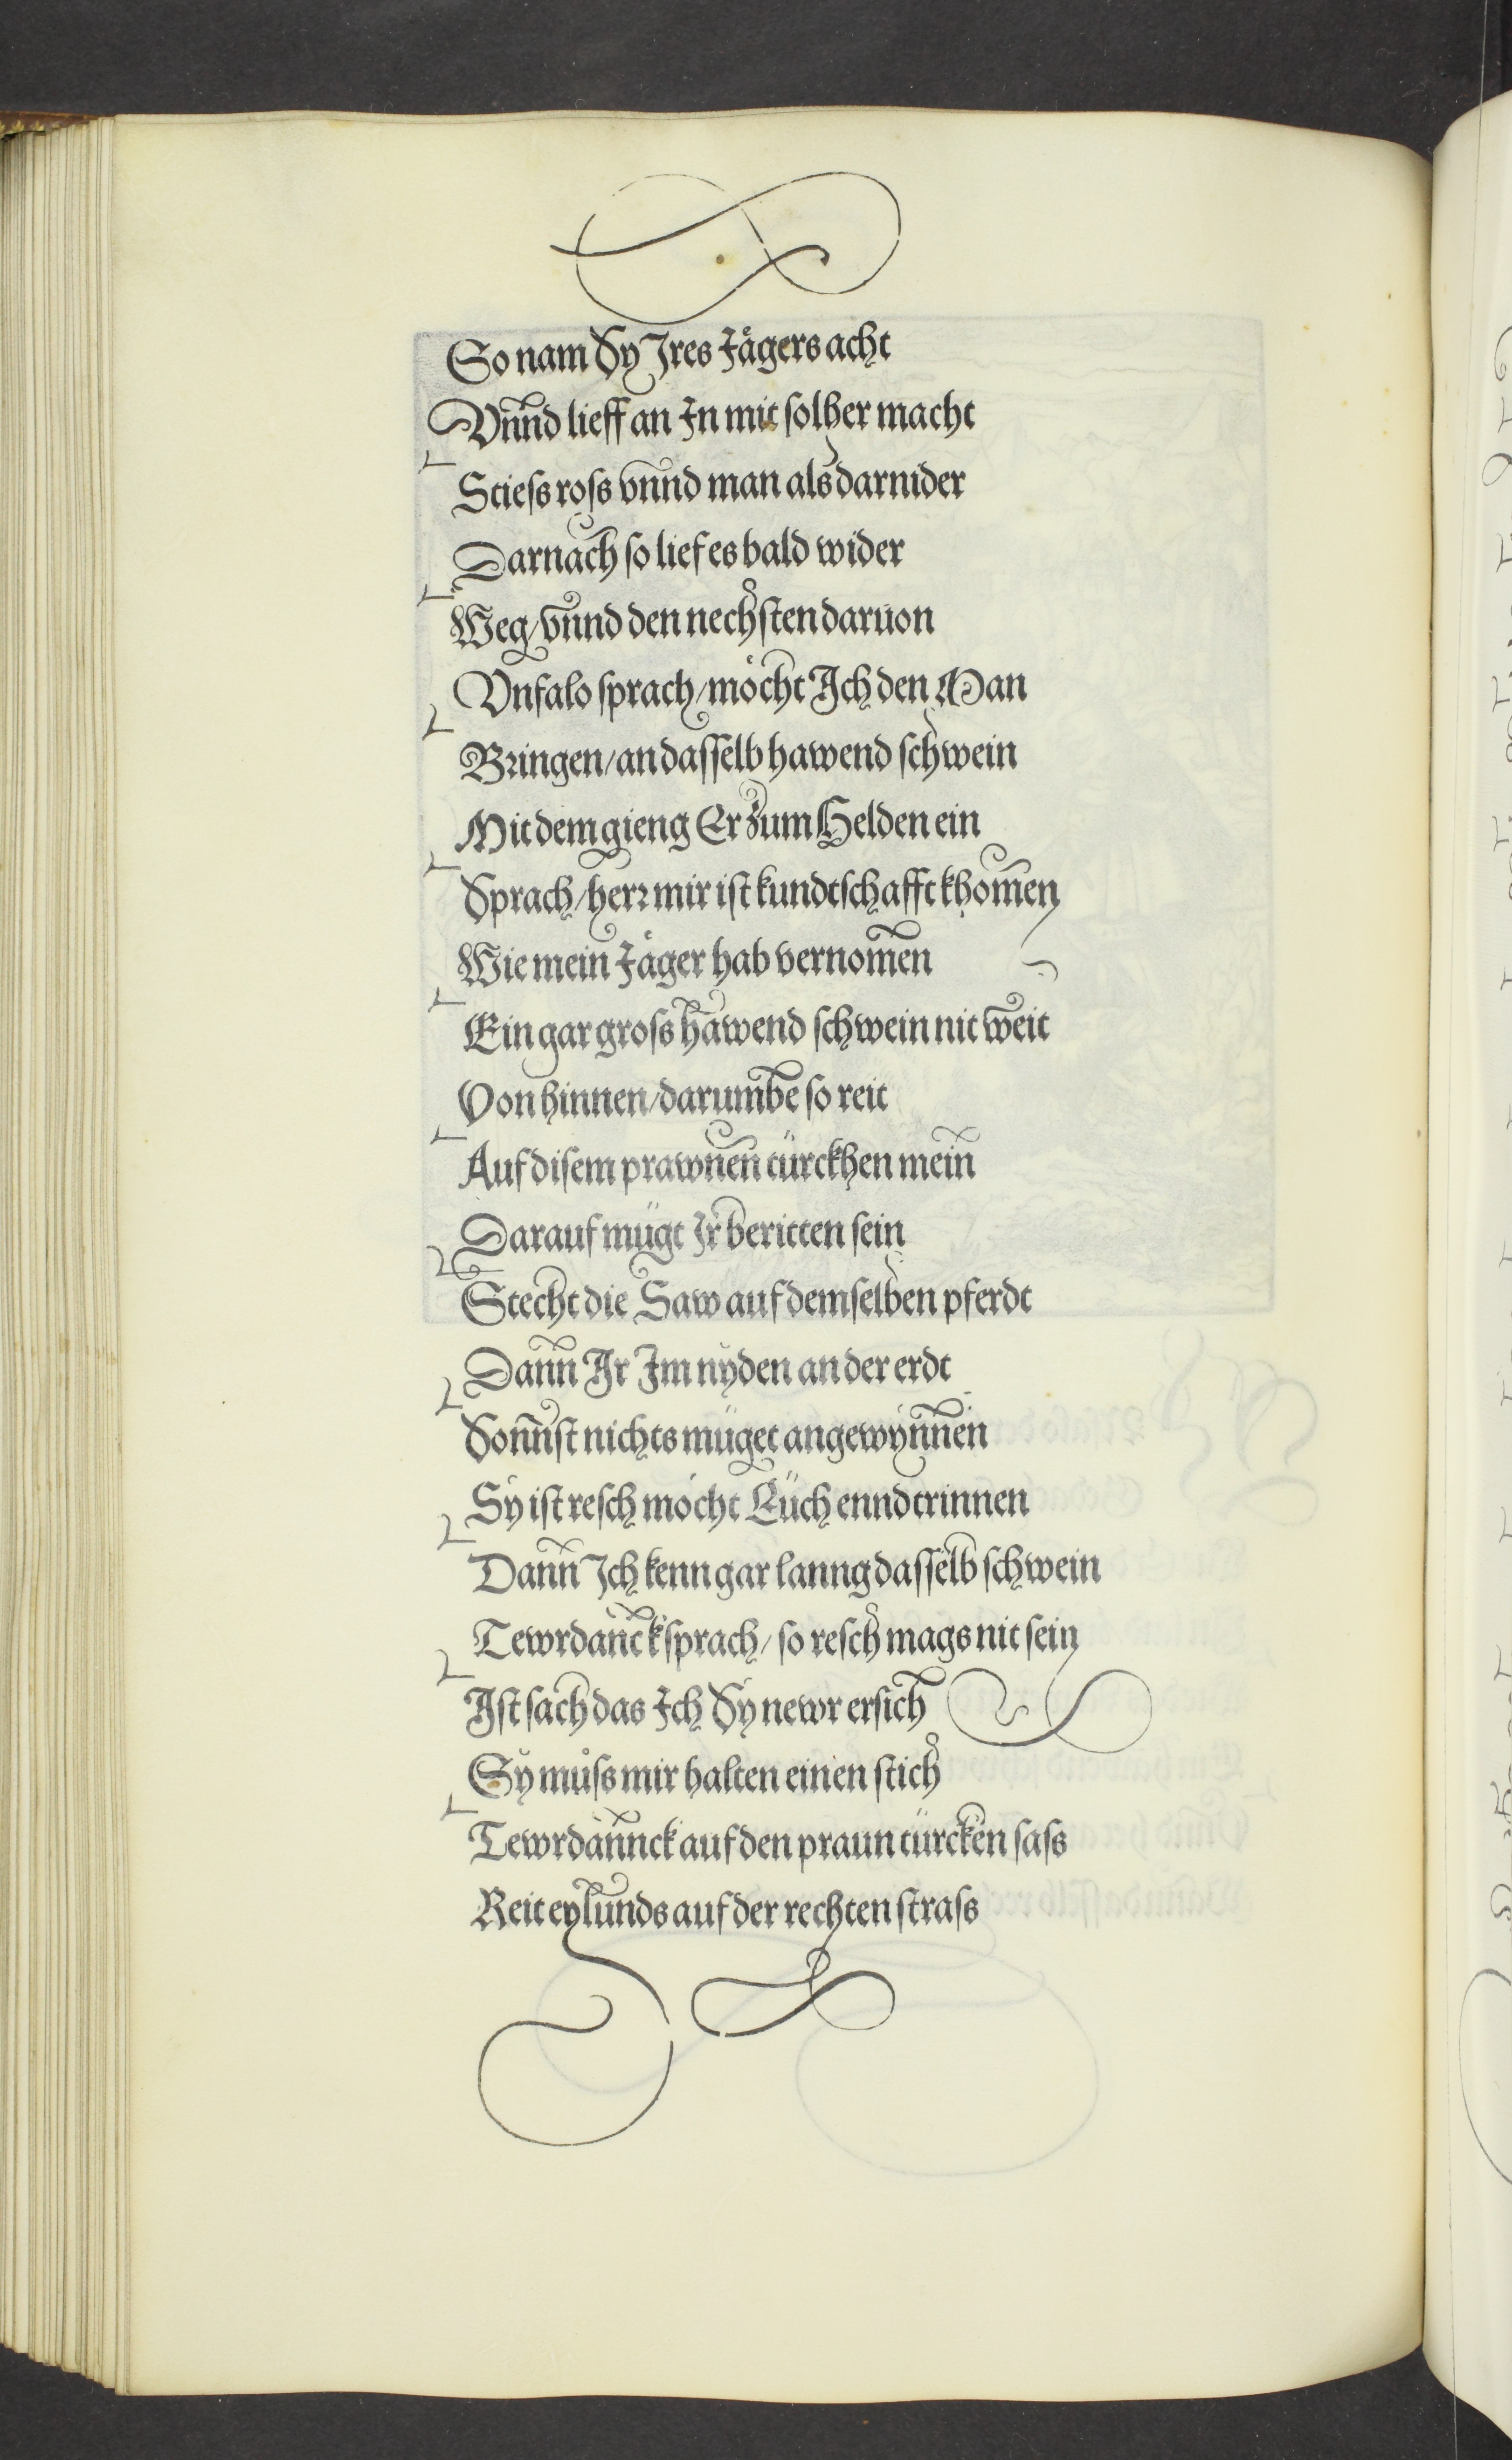 So nam Sy Jres Jägers acht
Vnnd lieff an Jn mit solher macht
Stiess ross vnnd man als darnider
Darnach so lief es bald wider
Weg/vnnd den nechsten daruon
Vnfalo sprach/möcht Jch den Man
Bringen/an dasselb hawend schwein
Mit dem gieng Er zum Helden ein
Sprach/herr mir ist kundtschafft khomen
Wie mein Jäger hab vernomen
Ein gar gross hawend schwein nit weit
Von hinnen/darumbe so reit
Auf disem prawnen türckhen mein
Darauf mügt Jr beritten sein
Stecht die Saw auf demselben pferdt
Dann Jr Jm nyden an der erdt
Sonnst nichts müget angewynnen
Sy ist resch möcht Eüch enndtrinnen
Dann Jch kenn gar lanng dasselb schwein
Tewrdanck sprach/so resch mags nit sein
Jst sach das Jch Sy newr ersich
Sy muͦss mir halten einen stich
Tewrdannck auf den praun türcken sass
Reit eylunds auf der rechten strass